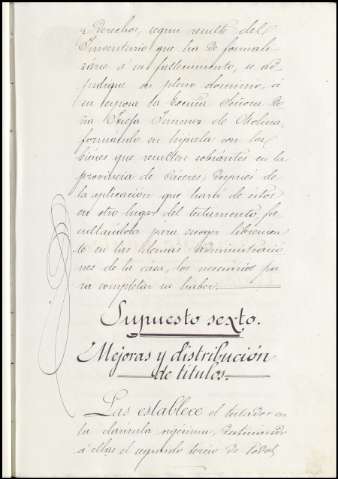 Derechos, segun resulte del
Inventario que ha de formali-
zarse á su fallecimiento, se ad-
judique en pleno dominio, á
su esposa la Excma Señora Do-
ña Josefa Jimenez de Molina,
formando su hijuela con los
bienes que resulten sobrantes en la
provincia de Cáceres, despues de
la aplicacion que hará de estos
en otro lugar del testamento fa-
cultandola para escoger libremen-
te en las demás administracio-
nes de la casa, los necesarios pa-
ra completar su haber.
Supuesto sexto.
Mejoras y distribución
de títulos.
Las establece el testador en
la cláusula vigésima, destinando
á ellas el segundo tercio de